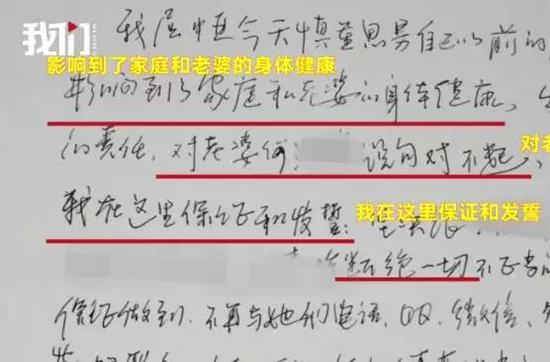 我们
WEVIDEO
我屈恒今天慎重思考自己以前的
影响到了家庭和老婆的身体健康
影响到了家庭和老婆的身体健康,
的责任,对老婆何 说句对不起,
对老
我在这里保证和发誓:
我在这里保证和发誓
断绝一切不正当
保证做到,不再与她们电话、QQ、微信、